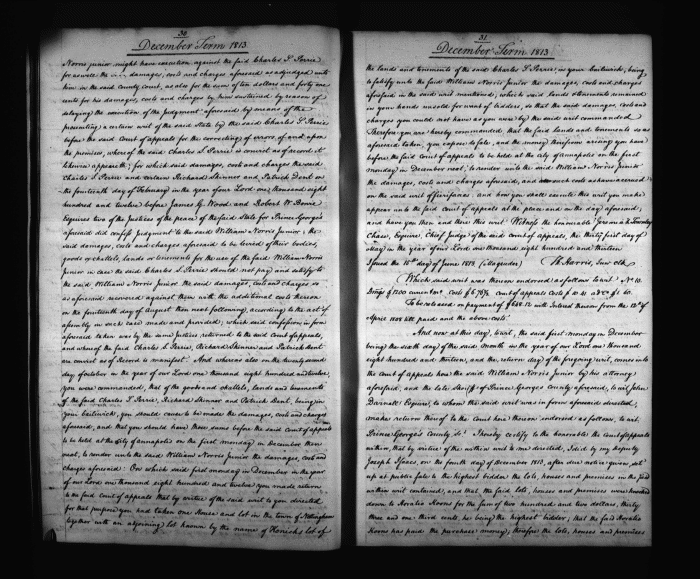 30
December Term 1813
Norris junior might have execution against the said Charles S. Perrie
for as well the damages, costs and charges aforesaid as adjudged unto
him in the said county court, as also for the sum of ten dollars and forty one
cents for his damages, costs and charges by him sustained by reason of
delaying the execution of the judgment aforesaid by means of the
presenting a certain writ of the said State by the said Charles S. Perrie
before the said Court of Appeals for the correcting of errors of and upon
the premises, whereof the said Charles S. Perrie is convict as of record it
likewise appeareth; for which said damages, costs and charges the said
Charles S Perrie and certain Richard Skinner and Patrick Dent on
the fourteenth day of February in the year of our Lord one thousand eight
hundred and twelve before James G. Wood and Robert W. Bowie
Esquires two of the Justices of the peace of the said State for Prince Georges
aforesaid did confess judgment to the said William Norris junior; the
said damages, costs and charges aforesaid to be levied of their bodies,
goods or chattels, lands or tenements for the use of the said William Norris
Junior in case the said Charles S. Perrie should not pay and satisfy to
the said William Norris Junior the said damages, costs and charges so
as aforesaid recovered against them with the additional costs thereon
on the fourteenth day of August then next following, according to the act of
assembly in such case made and provided; which said confession in form
aforesaid taken was by the said Justices returned to the said Court of appeals,
and whereof the said Charles S. Perrie, Richard Skinner and Patrick Dent
are convict as of Record is manifest. And whereas also on the twenty second
day of October in the year of our Lord one thousand eight hundred and twelve,
you were commanded, that of the goods and chattels, lands and tenements
of the said Charles S. Perrie, Richard Skinner and Patrick Dent, being in
your bailiwick, you should cause to be made the damages, costs and charges
aforesaid, and that you should have those sums before the said Court of appeals
to be held at the City of Annapolis on the first monday in December then
next, to render unto the said William Norris Junior the damages, costs and
charges aforesaid. On which said first monday in December in the year
of our Lord one thousand eight hundred and twelve you made return
to the said Court of appeals that by virtue of the said writ to you directed
for that purpose you had taken one House and lot in the town of Nottingham
together with an adjoining lot known by the name of lot of
31
December Term 1813
the lands and tenements of the said Charles S. Perrie, in your bailiwick, being
to satisfy unto the said William Norris Junior the damages, costs and charges
aforesaid in the said writ mentioned; which said lands & tenements remained
in your hands unsold for want of bidders, so that the said damages, costs and
charges you could not have as you were by the said writ commanded
Therefore you are hereby commanded that the said lands and tenements so as
aforesaid taken, you expose to sale, and the money therefrom arising you have
before the said Court of appeals to be held at the city of annapolis on the first
monday in December next, to render unto the said William Norris Junior
the damages, costs and charges aforesaid, and such costs as have accrued
on the said writ of fierifacias. and how you shall execute this writ you make
appear unto the said court of appeals at the place and on the day aforesaid,
and have you then and there this writ. Witness the honourable Jeremiah Townley
Chase, Esquire, Chief Judge of the said Court of appeals, the thirty first day of
May in the year of our Lord one thousand eight hundred and thirteen
Issued the 15th day of June 1813. Th. Harris, Junr clk
Which said writ was thereon endorsed as follows to wit. No 10.
To be released on payment of with Interest thereon from the 13th of
April 1808 till paid and the above costs.
And now at this day, to wit, the said first monday in December
being the sixth day of the said Month in the year of our Lord one thousand
eight hundred and thirteen, and the return day of the foregoing writ, comes into
the Court of appeals here the said William Norris Junior by his attorney
aforesaid, and the late Sheriff of Prince Georges County aforesaid, to wit John
Darnall Esquire, to whom the said writ was in form aforesaid directed,
makes return thereof to the Court here thereon endorsed as follows, to wit
Prince George's County Sc. I hereby certify to the honorable the Court of Appeals
within, that by virtue of the within writ to me directed, I did by my deputy
Joseph Isaac, on the fourth day of December 1813, after due notice given, set
up at public sale to the highest bidder the lots, houses and premises in the said
writ within contained, and that the said lots, houses and premises were knocked
down to Horatio Moore for the sum of two hundred and two dollars, thirty
three and one third cents, he being the highest bidder; that the said Horatio
Moore has paid the purchase money; therefore the lots, houses and premises